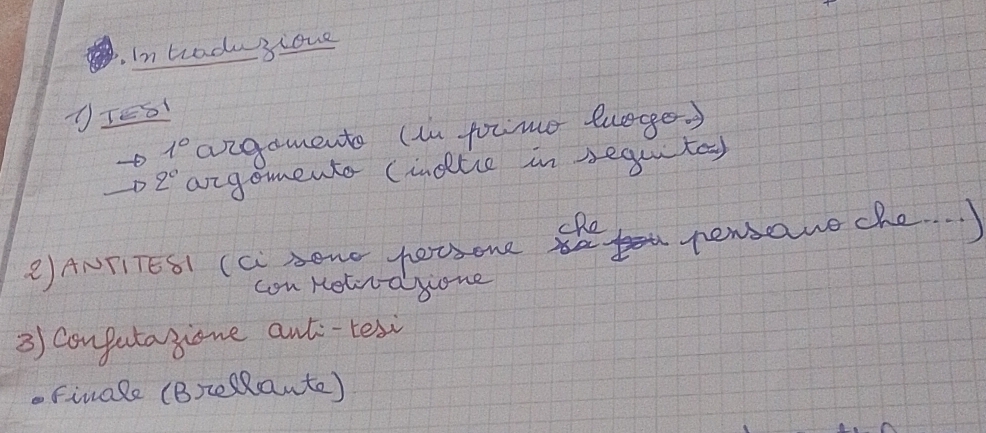 . Introduzione
1) TESI
→ 1° argomento (in primo luogo..)
→ 2° argomento (inoltre in seguito..)
2) ANTITESI (ci sono persone che pensano che....)
con Motivazione
3) Confutazione anti-tesi
• Finale (Brellante)